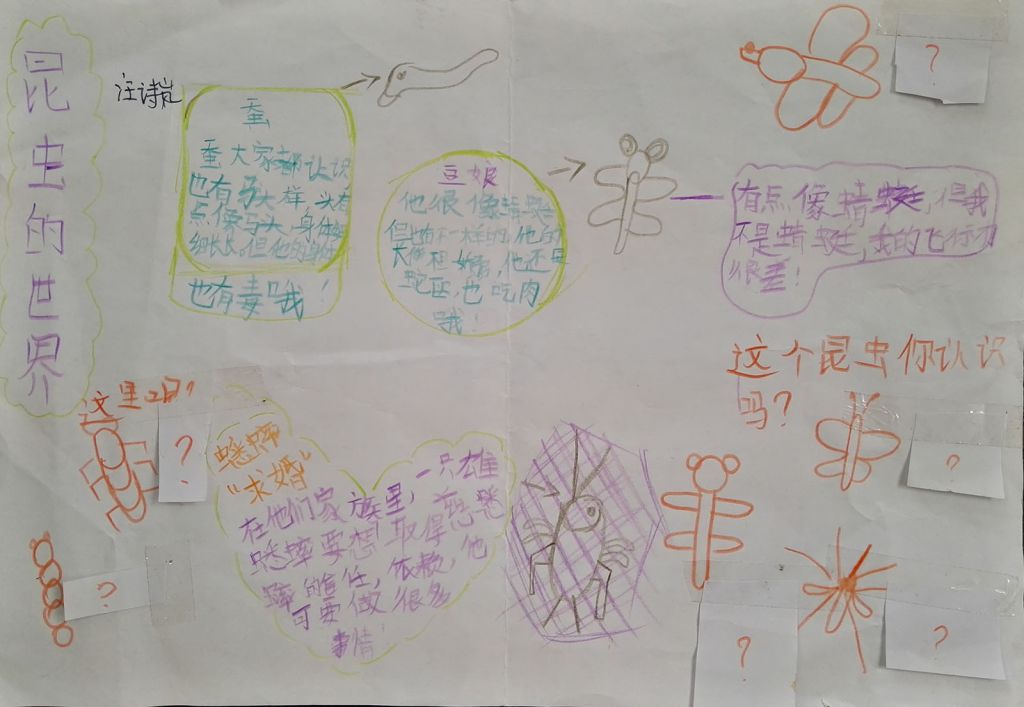 昆虫的世界
汪诗岚
蚕
蚕大家都认识
也有马大样,头有
点像马头,身体
细长长。但他的身体
也有毒哦!
豆娘
他很像蜻蜓
但也有不一样的,他的
他还是
也吃肉
哦!
有点像蜻蜓,但我
不是蜻蜓,我的飞行力
很差!
?
这个昆虫你认识
吗?
这里2only
?
?
蟋蟀
“求婚”
在他们家族里,一只雄
蟋蟀要想取得慈蟋
蟀的信任,依赖,他
可要做很多
事情!
?
?
?